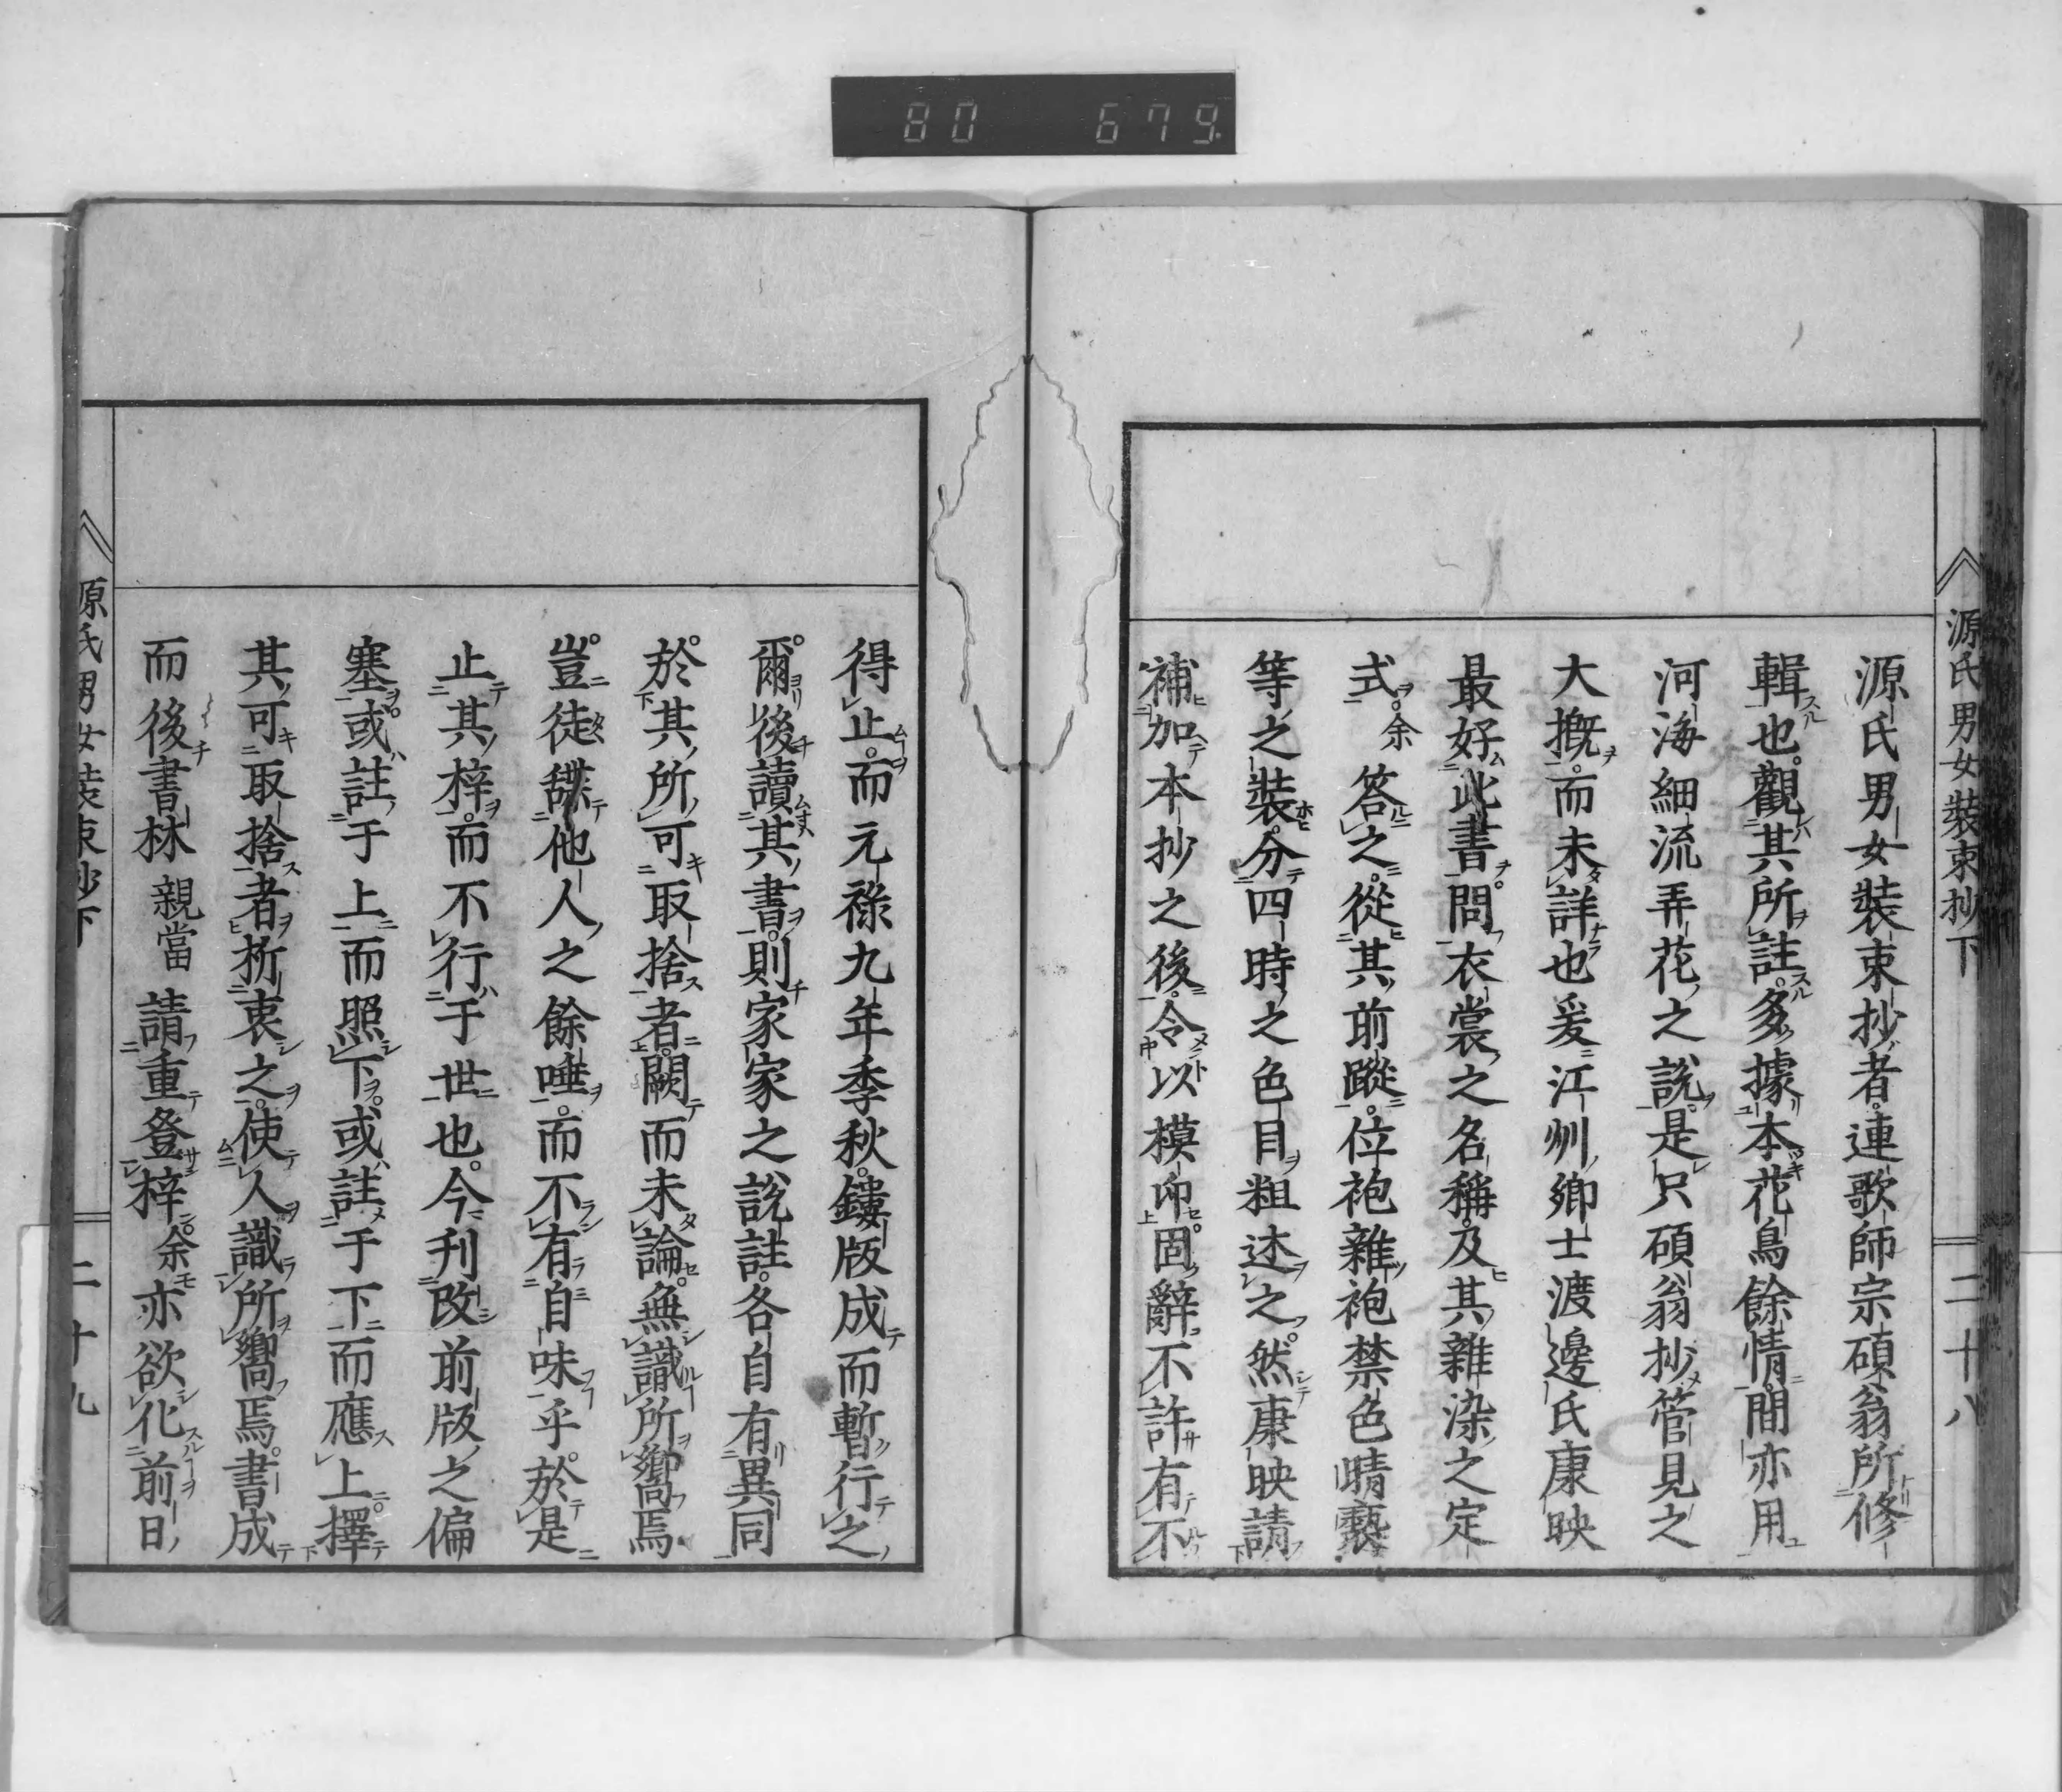 80 679
源氏男女裝束抄下
二十八
源氏男女裝束抄者連歌師宗碩翁所修
輯也觀其所註多據本花鳥餘情間亦用
河海細流弄花之說是只碩翁抄管見之
大概而未詳也爰江州鄉士渡邊氏康映
最好此書問衣裳之名稱及其雜染之定
式余答之從其前蹤位袍雜袍禁色晴褻
等之裝分四時之色目粗述之然康映請
補加本抄之後令以模印固辭不許有不
得止而元祿九年季秋鏤版成而暫行之
爾後讀其書則家家之說註各自有異同
於其所可取捨者闕而未論無識所嚮焉
豈徒䑛他人之餘唾而不有自味乎於是
止其梓而不行于世也今刋改前版之偏
塞或註于上而照下或註于下而應上擇
其可取捨者折衷之使人識所嚮焉書成
而後書林親當請重登梓余亦欲化前日
源氏男女裝束抄下
二十九